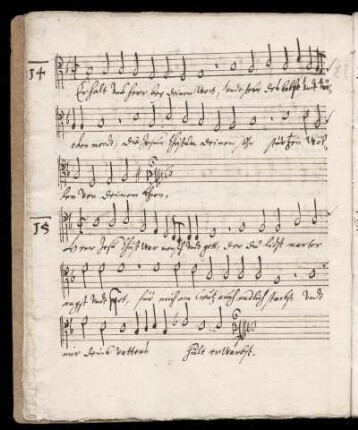 14
Erhalt uns Herr bey deinem Wort, undt steur des babsts undt
die Jesum Christum deinen Sohn stürtzen
von deinem Thron.
15
Herr Jesu Christ war mensch undt gott, der du lidst marter
angst undt spot, für mich am Creutz auch endlich starbst undt
mir deins Vatters hült erwarbst.